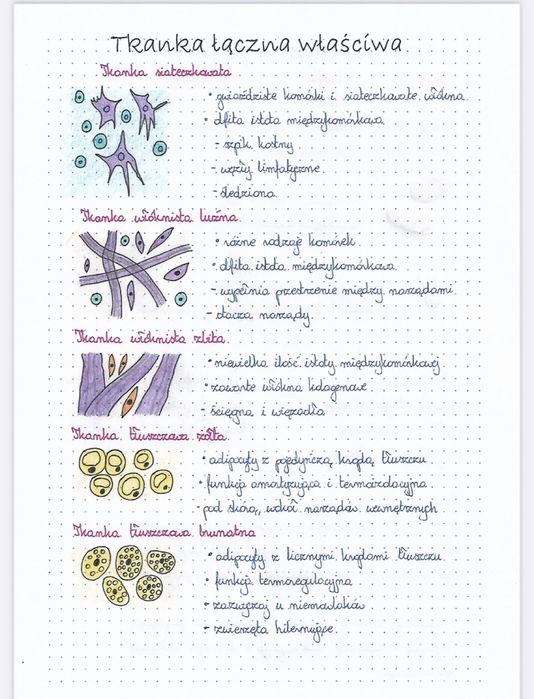 Tkanka łączna właściwa
Tkanka siateczkowata
• gwiaździste komórki i siateczkowate włókna
• obfita istota międzykomórkowa
- szpik kostny
- węzły limfatyczne
- śledziona
Tkanka włóknista luźna
• różne rodzaje komórek
• obfita istota międzykomórkowa
- wypełnia przestrzenie między narządami
- otacza narządy
Tkanka włóknista zbita
• niewielka ilość istoty międzykomórkowej
• zawarte włókna kolagenowe
- ścięgna i więzadła
Tkanka tłuszczowa żółta
• adipocyty z pojedynczą kroplą tłuszczu
• funkcja amortyzująca i termoizolacyjna
- pod skórą, wokół narządów wewnętrznych
Tkanka tłuszczowa brunatna
• adipocyty z licznymi kroplami tłuszczu
• funkcja termoregulacyjna
- zazwyczaj u niemowlaków
- zwierzęta hibernujące